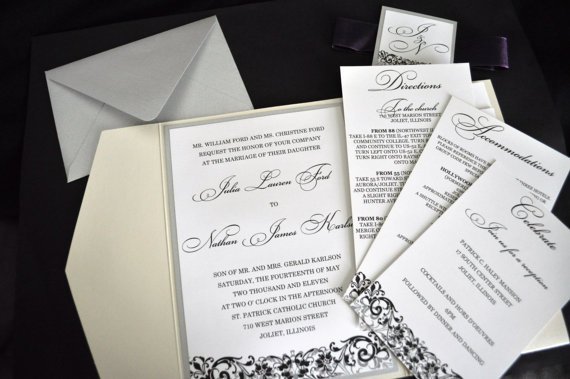 MR. WILLIAM FORD AND MS. CHRISTINE FORD
REQUEST THE HONOR OF YOUR COMPANY
AT THE MARRIAGE OF THEIR DAUGHTER
Julia Lauren Ford
TO
Nathan James
SON OF MR. AND MRS. GERALD KARLSON
SATURDAY, THE FOURTEENTH OF MAY
TWO THOUSAND AND ELEVEN
AT TWO O' CLOCK IN THE AFTERNOON
ST. PATRICK CATHOLIC CHURCH
710 WEST MARION STREET
JOLIET, ILLINOIS
Directions
To the church
WEST MARION STREET
JOLIET, ILLINOIS
FROM 88 (NORTHWEST
TAKE I-88 E TO
COMMUNITY COLLEGE, TURN
CONTINUE ONTO US-30
TURN LEFT ONTO US-52
TURN RIGHT ONTO
JOLIET
FROM 55
TAKE 55 S TOWARD
AURORA/JOLIET,
CONTINUE
HUNTER
FROM 80
TAKE I-80 E TOWARD
APPROXIMATELY
EXIT
TAKE A SLIGHT
TURN RIGHT
Accommodations
BLOCKS OF ROOMS HAVE
THREE HOTELS
GROUP CODE
HOLLYWOOD
APPROXIMATELY
Celebrate
Join us for a reception
PATRICK C. HALEY MANSION
17 SOUTH CENTER STREET
JOLIET, ILLINOIS
COCKTAILS AND HORS D'OEUVRES
6PM
FOLLOWED BY DINNER AND DANCING